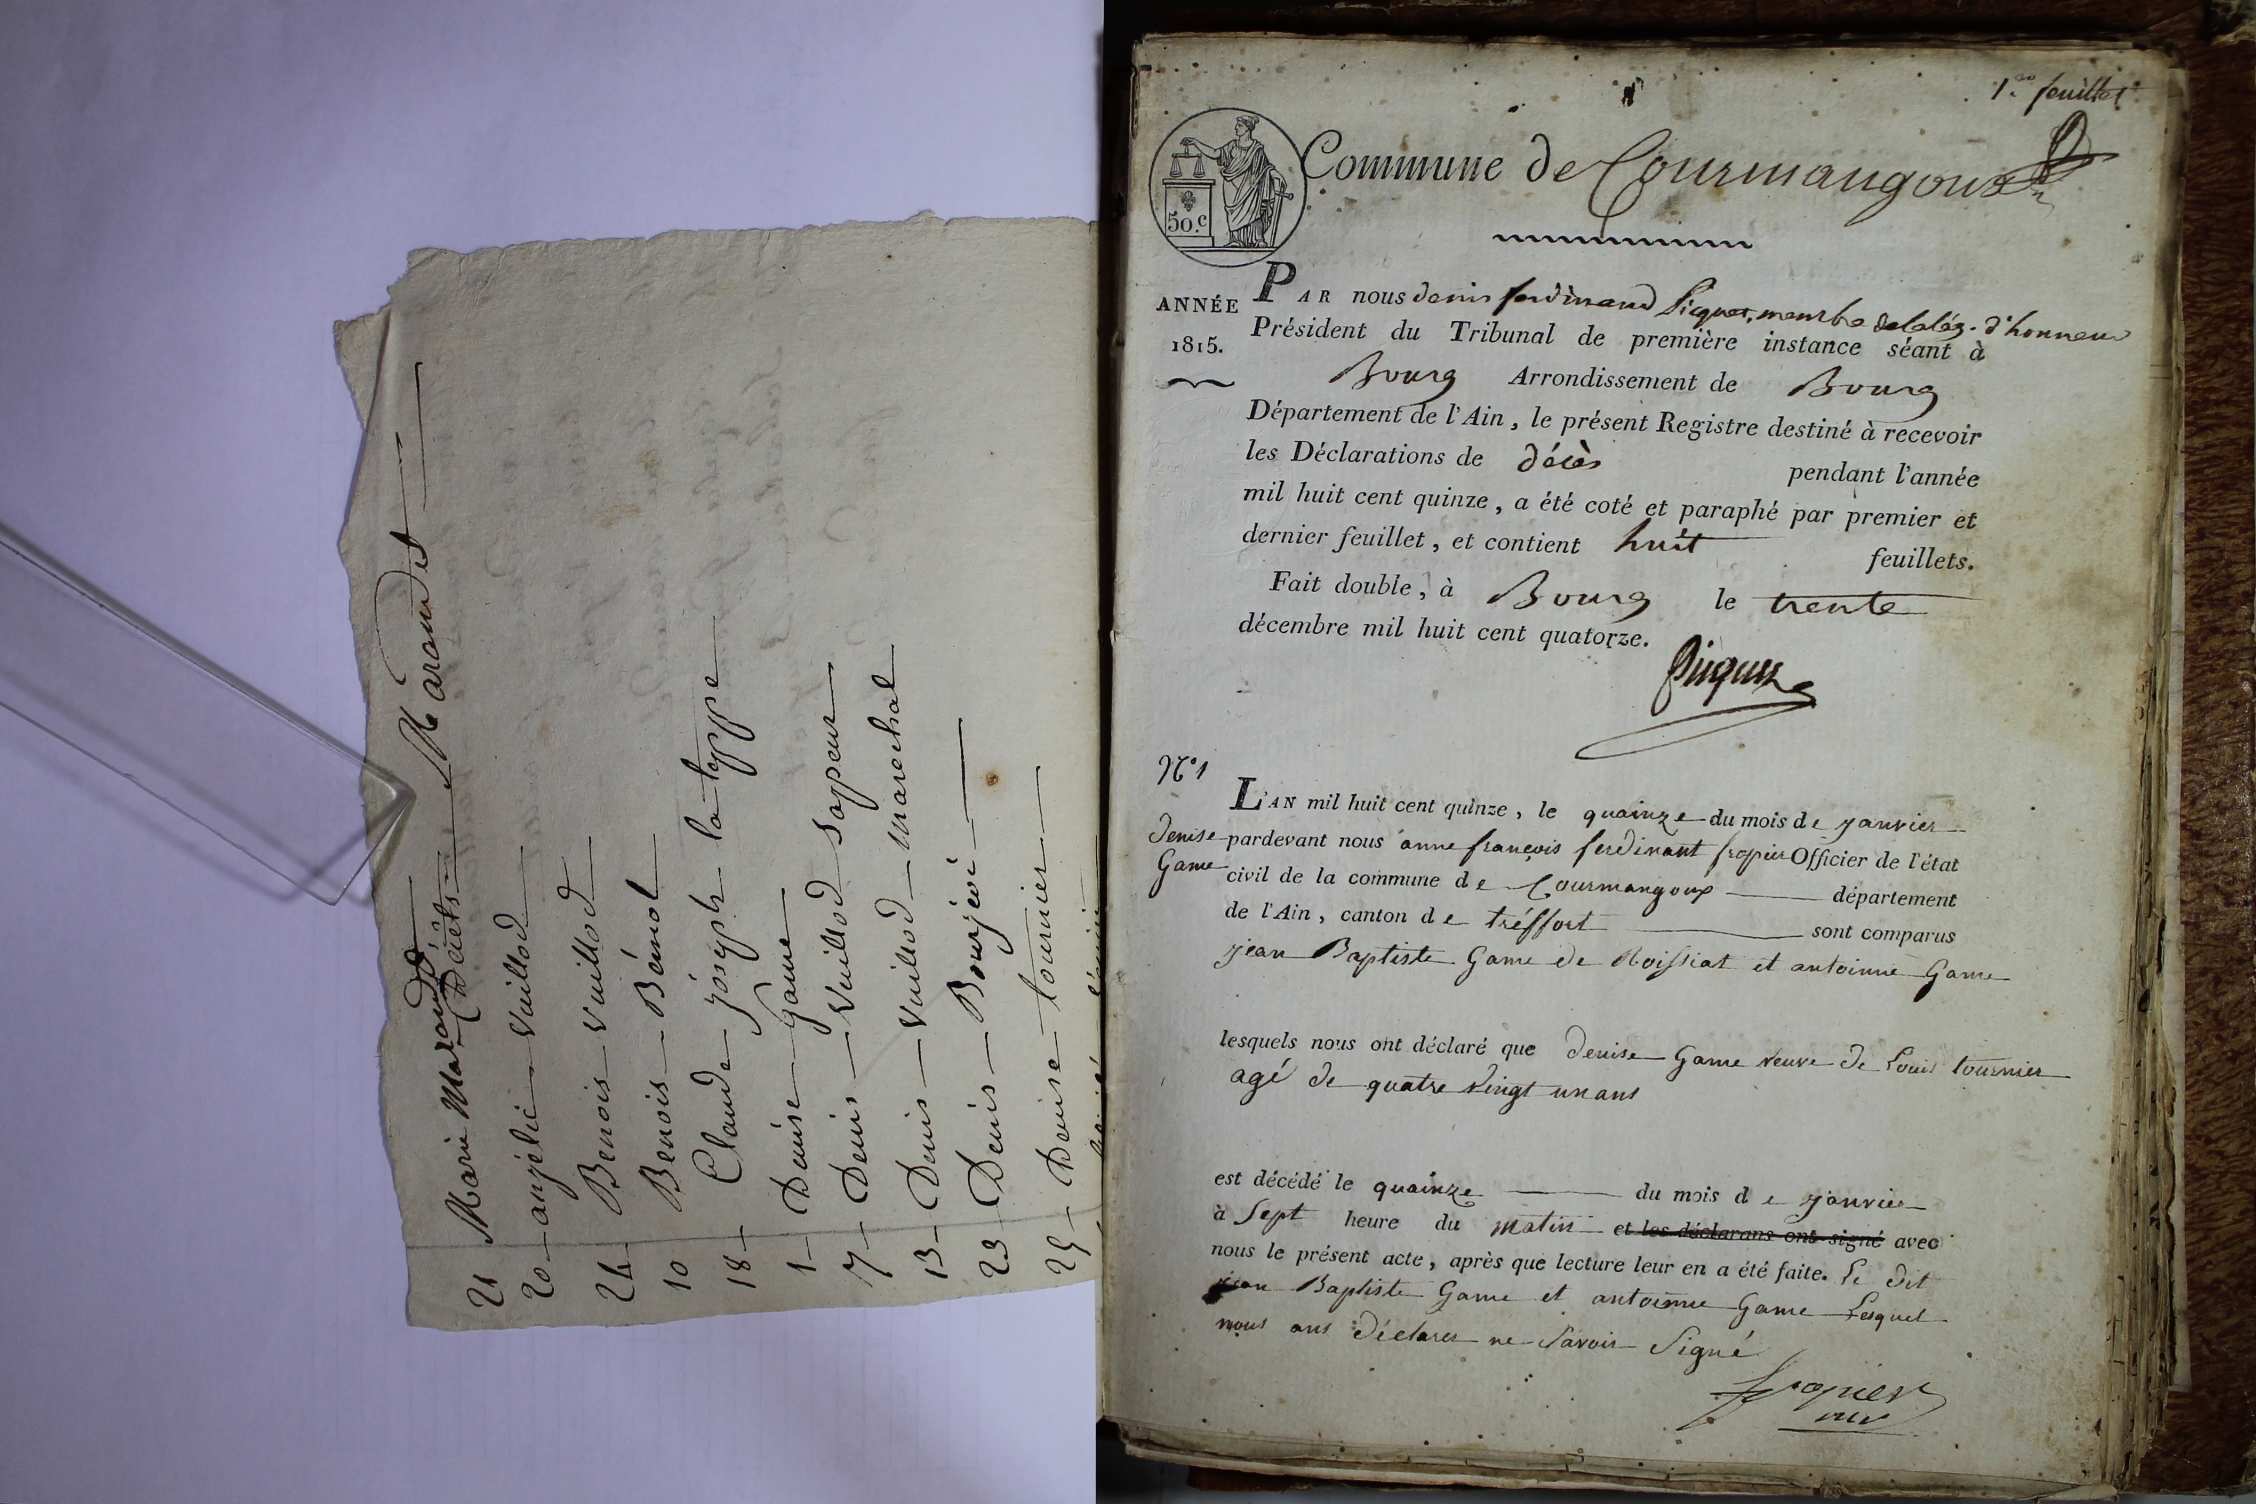 Décès
Marandet
21 Marin Marand
20 - anjélic - Vuillod
26 - Benois - Vuillod
10 Benois - Bémol
18 - Claude - joseph la teppe
1 - Denise - Game
7 - Denis - Vuillod sapeur
13 - Denis - Vuillod - marechal
23 - Denis - Bourjéoi
25 - Denise - tournier
1er feuillet
Commune de Courmangoux
50.c
ANNÉE
1815.
PAR nous denis ferdinand Picquet, membre de la lég. d'honneur
Président du Tribunal de première instance séant à
Bourg Arrondissement de Bourg
Département de l'Ain, le présent Registre destiné à recevoir
les Déclarations de décès pendant l'année
mil huit cent quinze, a été coté et paraphé par premier et
dernier feuillet, et contient huit feuillets.
Fait double, à Bourg le trente
décembre mil huit cent quatorze.
Picquet
N° 1
denise
Game
L'AN mil huit cent quinze, le quainze du mois de janvier
pardevant nous anne françois ferdinant fropier Officier de l'état
civil de la commune de Courmangoux département
de l'Ain, canton de tréffort sont comparus
jean Baptiste Game de Roissiat et antoinne Game
lesquels nous ont déclaré que denise Game veuve de Louis tournier
agé de quatre vingt un ans
est décédé le quainze du mois de janvier
à Sept heure du matin et les déclarans ont signé avec
nous le présent acte, après que lecture leur en a été faite. Le dit
jean Baptiste Game et antoinne Game Lesquel
nous ont déclarer ne Savoir Signé
fropier